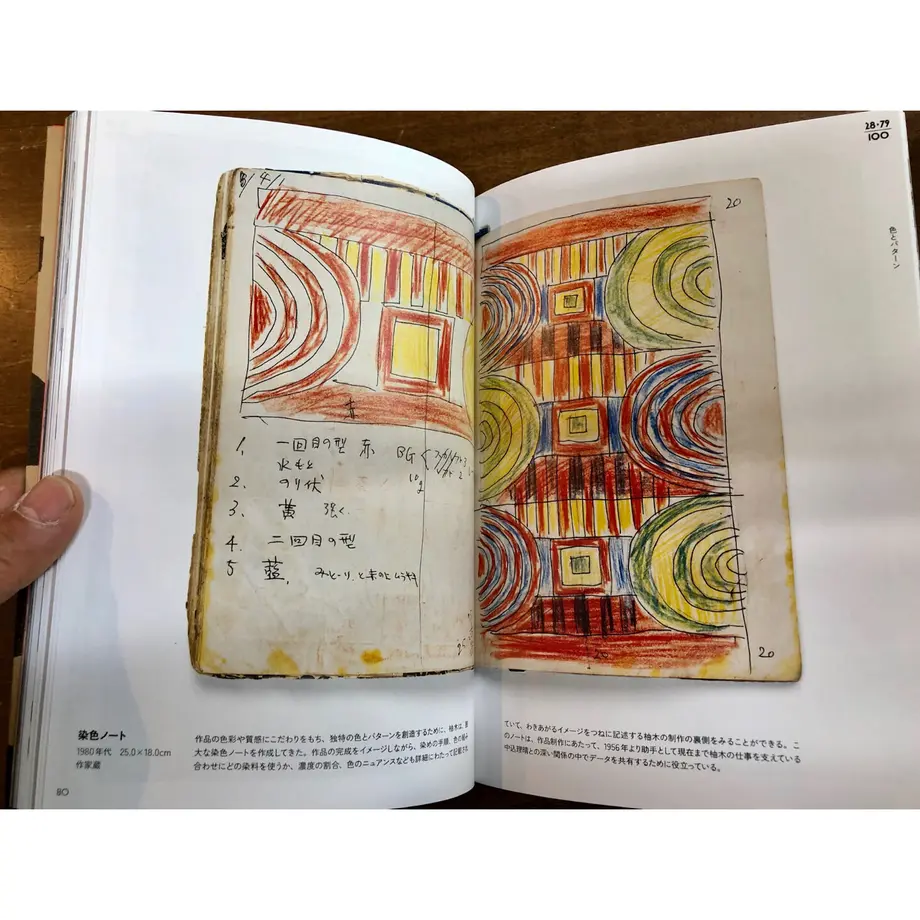 28・79
100
色とパターン
4/1
20
赤
1. 一回目の型 赤 BG
水もと
10g
2. のり伏
3. 黄 強く
4. 二回目の型
5 藍,
20
染色ノート
1980年代 25.0×18.0cm
作家蔵
作品の色彩や質感にこだわりをもち、独特の色とパターンを創造するために、柚木は、膨
大な染色ノートを作成してきた。作品の完成をイメージしながら、染めの手順、色の組み
合わせにどの染料を使うか、濃度の割合、色のニュアンスなども詳細にわたって記載され
ていて、わきあがるイメージをつねに記述する柚木の制作の裏側をみることができる。こ
のノートは、作品制作にあたって、1956年より助手として現在まで柚木の仕事を支えている
中込理晴との深い関係の中でデータを共有するために役立っている。
80